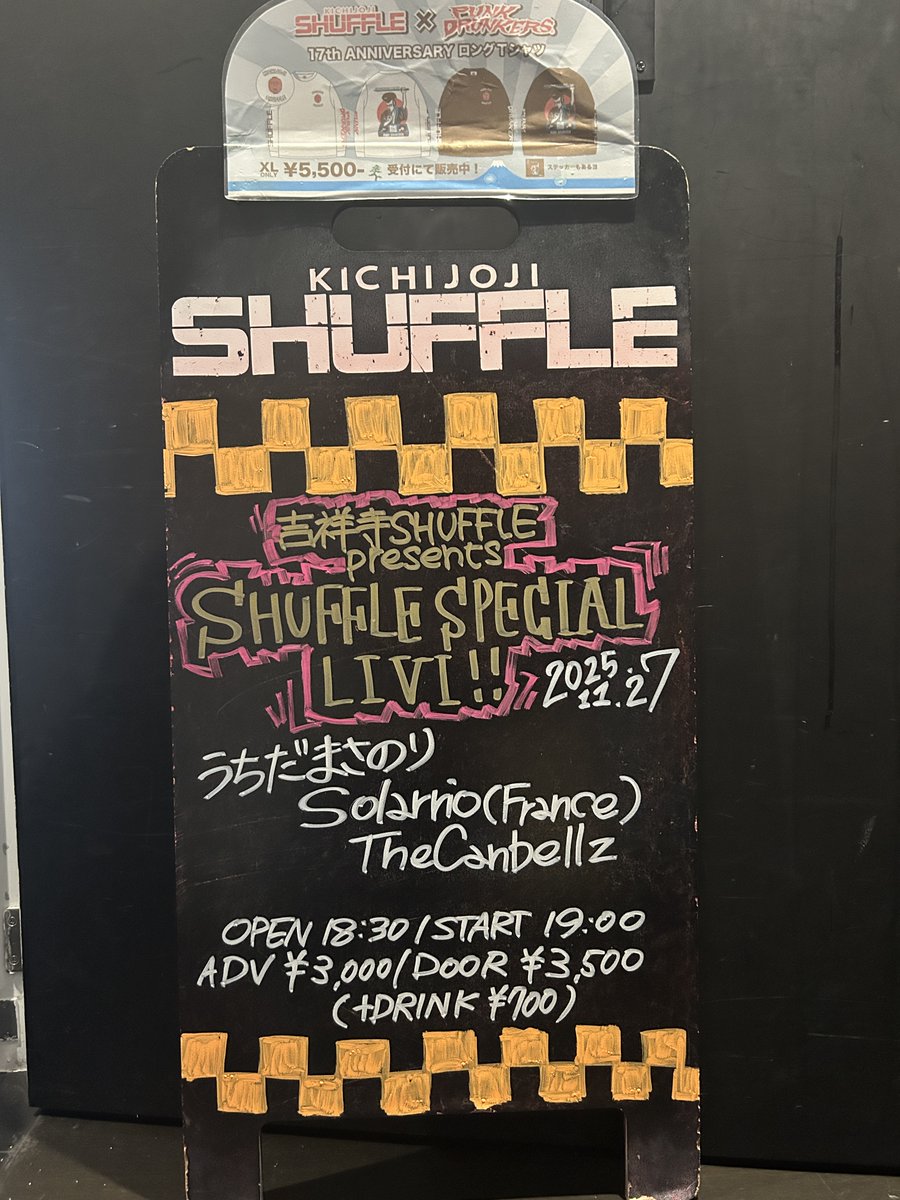 KICHIJOJI
SHUFFLE × PUNK DRUNKERS
17th ANNIVERSARY ロングTシャツ
XL ONLY ¥5,500- 受付にて販売中! ステッカーもあるヨ
KICHIJOJI
SHUFFLE
吉祥寺SHUFFLE
presents
SHUFFLE SPECIAL
LIVI!!
2025.
11.27
うちだまさのり
Solarrio(France)
TheCanbellz
OPEN 18:30/START 19:00
ADV ¥3,000/DOOR ¥3,500
(+DRINK ¥700)